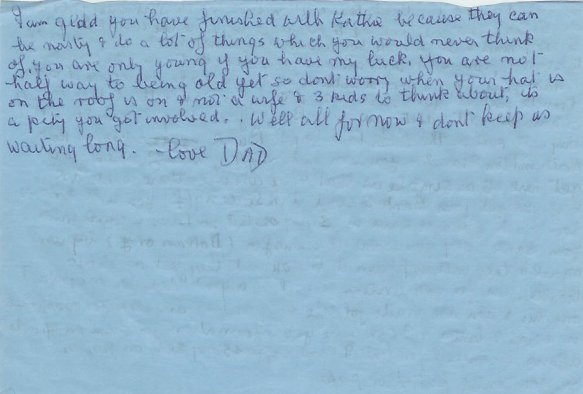 I am glad you have finished with Kathie because they can
be nasty & do a lot of things which you would never think
of. you are only young if you have my luck. you are not
half way to being old yet so dont worry when your hat is
on the roof is on & not a wife & 3 kids to think about, its
a pity you got involved.. Well all for now & dont keep us
waiting long. - Love DAD